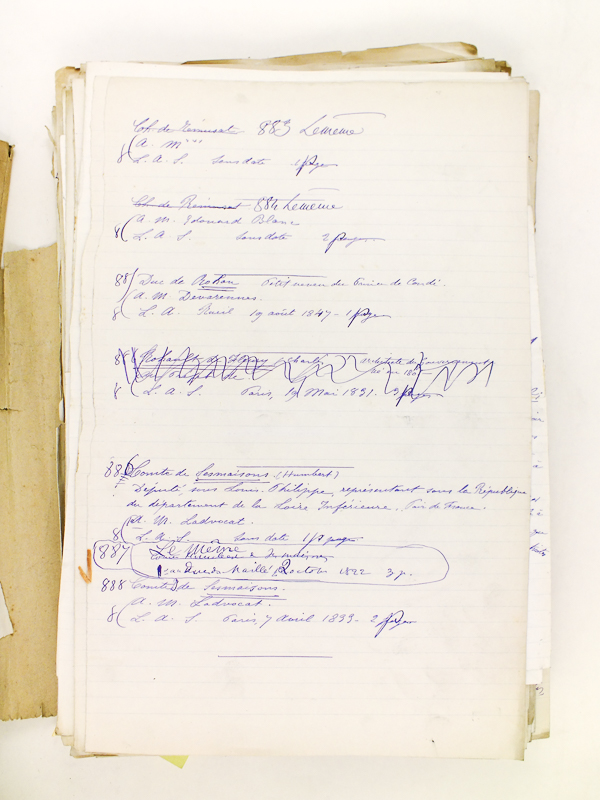 Ch. de Rémusat 883 Le même
A. M***
8 L. A. S. sans date 1 page
Ch. de Rémusat 884 Le même
A. M. Edouard Blanc
8 L. A. S. sans date 2 pages
885 Duc de Rohan Petit neveu du Prince de Condé.
A. M. Devarennes.
8 L. A. Rueil 19 avril 1847 - 1 page
Rohault de Fleury Charles architecte du gouvernement
8 L. A. S. Paris, 19 Mai 1831. 3 pages
886 Comte de Sesmaisons (Humbert)
Député sous Louis Philippe, représentant sous la République
du département de la Loire Inférieure, Pair de France
A. M. Ladvocat.
8 L. A. S. sans date 1 page
887 Le Même
1822 3 p.
888 Comte de Sesmaisons.
A. M. Ladvocat.
8 L. A. S. Paris, 7 avril 1833 - 2 pages